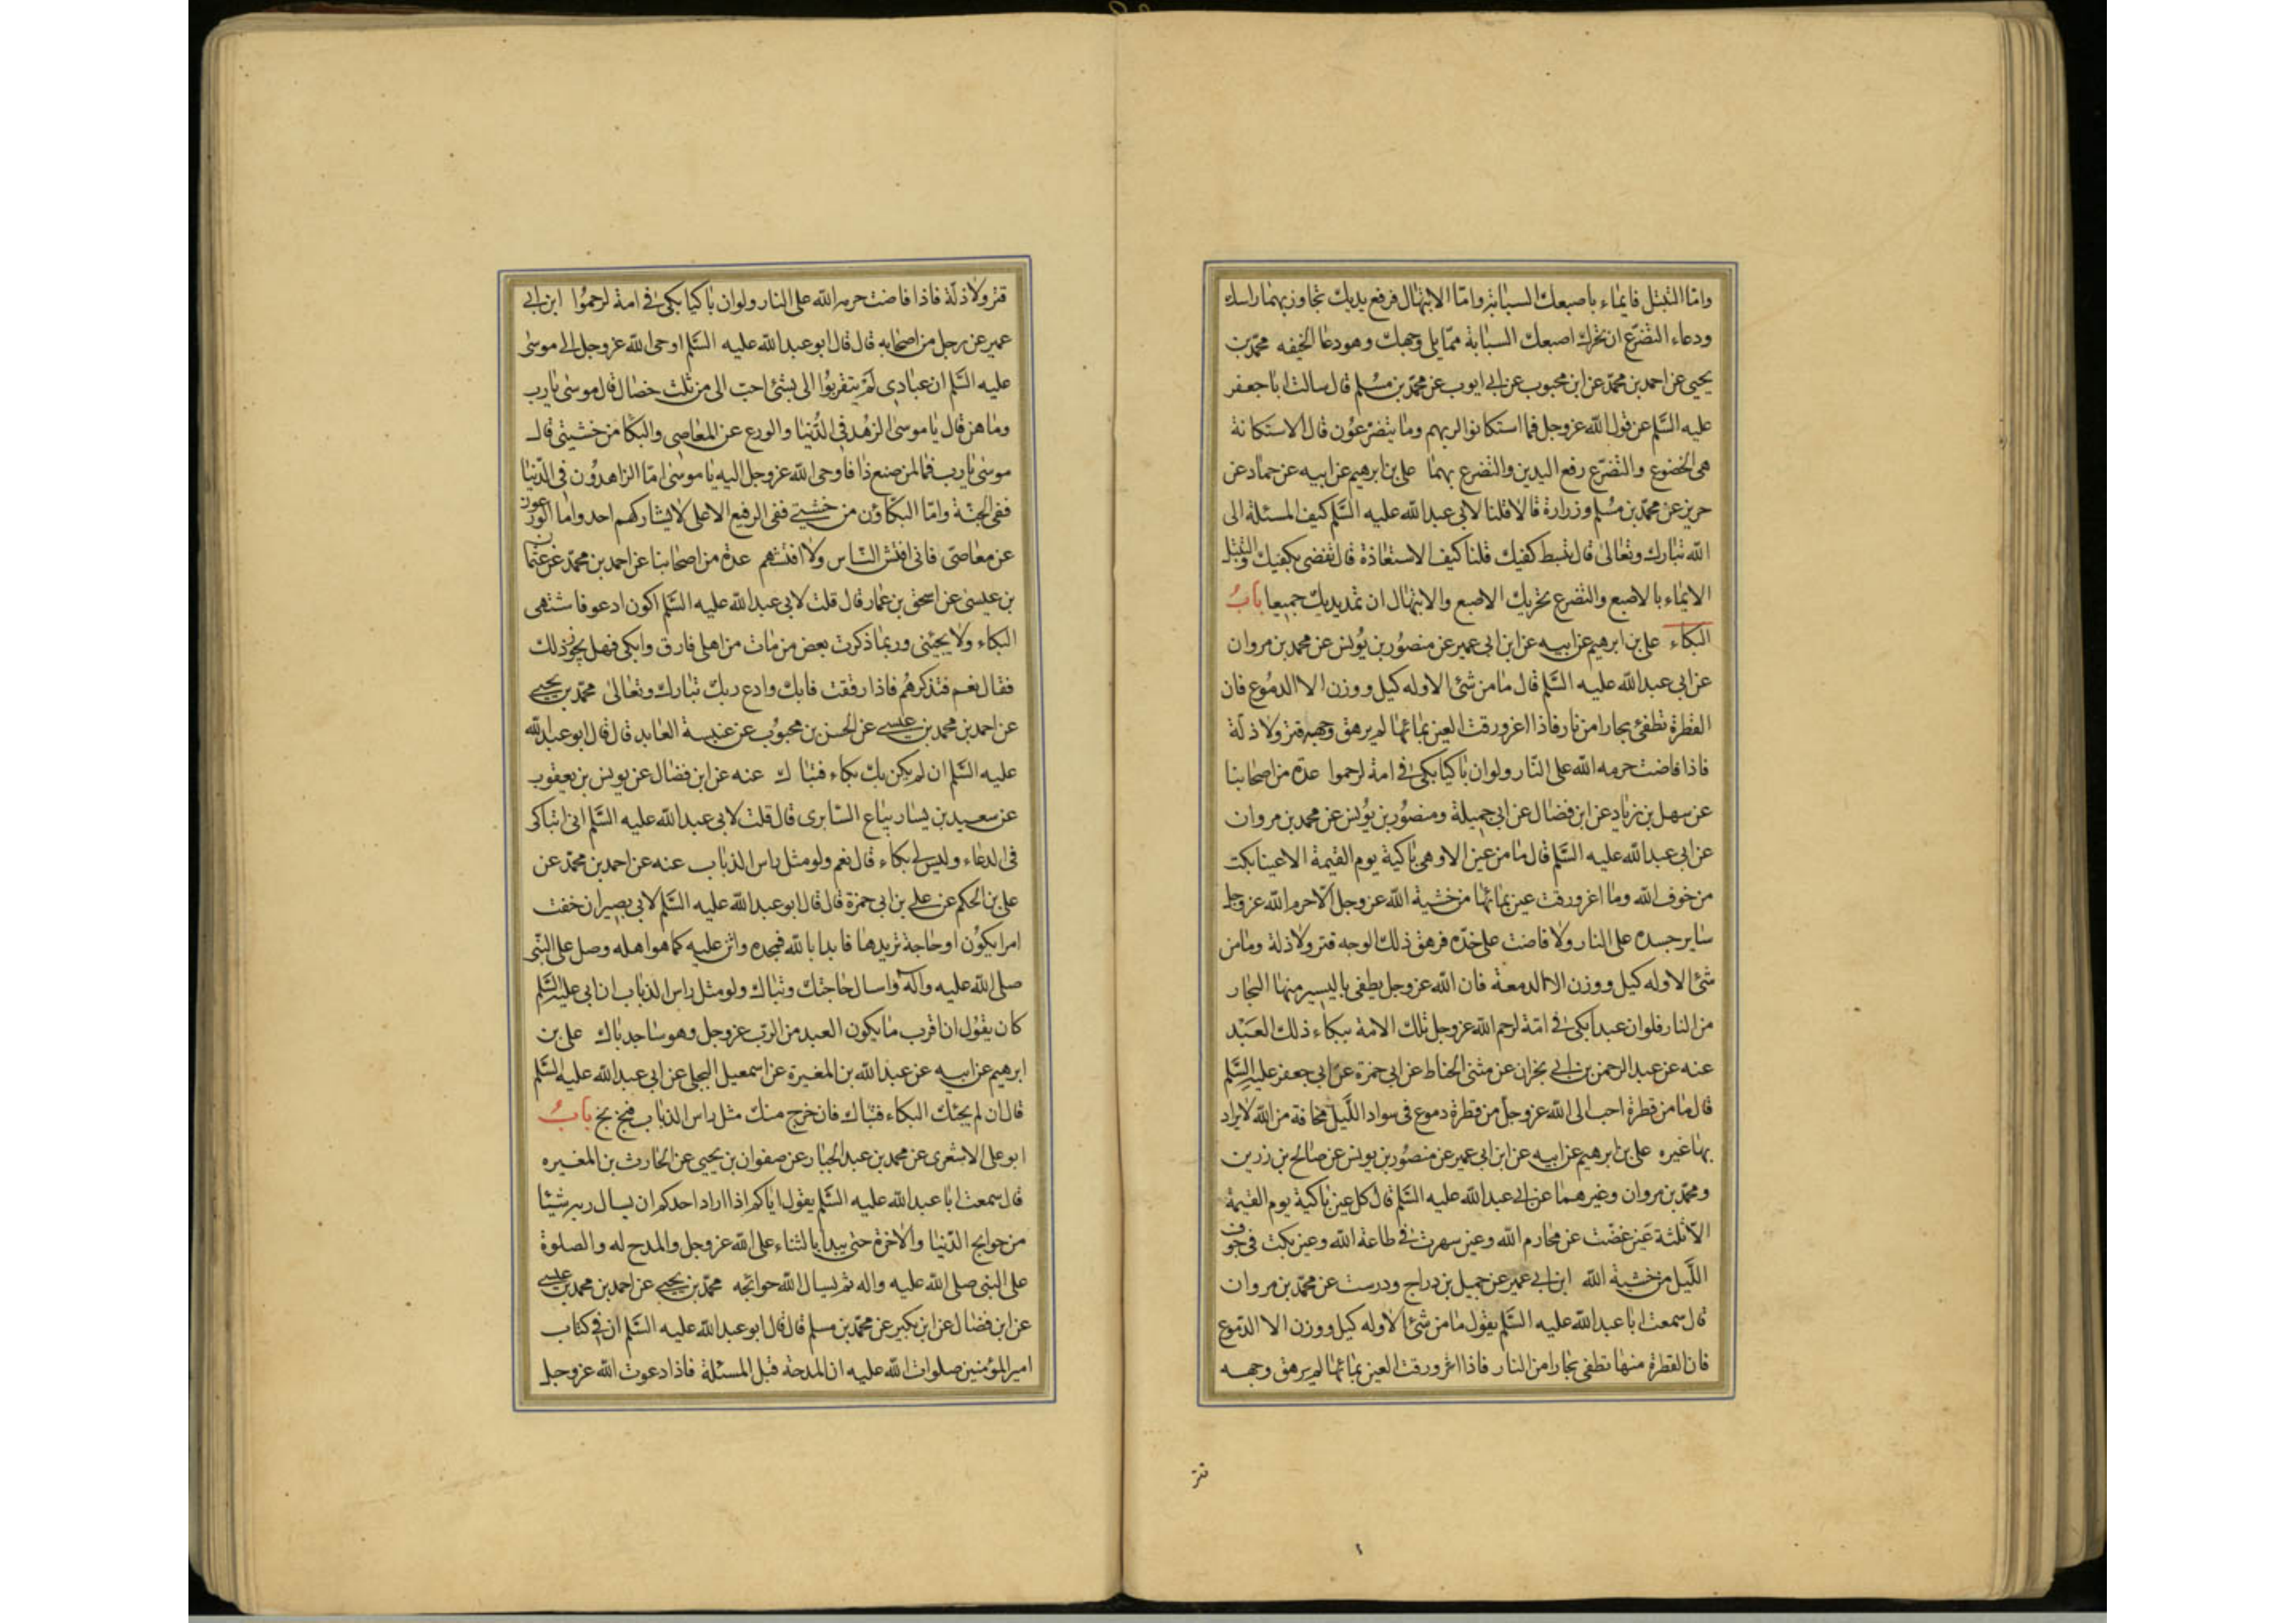 واما التبتل فايماء باصبعك السبابة واما الابتهال فرفع يديك تجاوز بهما راسك
ودعاء التضرع ان تحرك اصبعك السبابة مما يلى وجهك وهو دعا الخيفه محمد بن
يحيى عن احمد بن محمد عن ابن محبوب عن ابى ايوب عن محمد بن مسلم قال سالت ابا جعفر
عليه السلم عن قول الله عز وجل فما استكانوا لربهم وما يتضرعون قال الاستكانة
هى الخضوع والتضرع رفع اليدين والتضرع بهما على بن ابرهيم عن ابيه عن حماد عن
حريز عن محمد بن مسلم وزرارة قالا قلنا لابى عبد الله عليه السلم كيف المسئلة الى
الله تبارك وتعالى قال تبسط كفيك قلنا كيف الاستعاذة قال تفضى بكفيك والتبتل
الايماء بالاصبع والتضرع تحريك الاصبع والابتهال ان تمد يديك جميعا باب
البكاء على بن ابرهيم عن ابيه عن ابن ابى عمير عن منصور بن يونس عن محمد بن مروان
عن ابى عبد الله عليه السلم قال ما من شئ الا وله كيل ووزن الا الدموع فان
القطرة تطفئ بحارا من نار فاذا اغرورقت العين بمائها لم يرهق وجهه قتر ولا ذلة
فاذا فاضت حرمه الله على النار ولو ان باكيا بكى فى امة لرحموا عدة من اصحابنا
عن سهل بن زياد عن ابن فضال عن ابى جميلة ومنصور بن يونس عن محمد بن مروان
عن ابى عبد الله عليه السلم قال ما من عين الا وهى باكية يوم القيمة الا عينا بكت
من خوف الله وما اغرورقت عين بمائها من خشية الله عز وجل الا حرم الله عز وجل
ساير جسده على النار ولا فاضت على خده فرهق ذلك الوجه قتر ولا ذلة وما من
شئ الا وله كيل ووزن الا الدمعة فان الله عز وجل يطفى باليسير منها البحار
من النار فلو ان عبدا بكى فى امة لرحم الله عز وجل تلك الامة ببكاء ذلك العبد
عنه عن عبد الرحمن بن ابى نجران عن مثنى الحناط عن ابى حمزة عن ابى جعفر عليه السلم
قال ما من قطرة احب الى الله عز وجل من قطرة دموع فى سواد الليل مخافة من الله لا يراد
بها غيره على بن ابرهيم عن ابيه عن ابن ابى عمير عن منصور بن يونس عن صالح بن رزين
ومحمد بن مروان وغيرهما عن ابى عبد الله عليه السلم قال كل عين باكية يوم القيمة
الا ثلثة عين غضت عن محارم الله وعين سهرت فى طاعة الله وعين بكت فى جوف
الليل من خشية الله ابن ابى عمير عن جميل بن دراج ودرست عن محمد بن مروان
قال سمعت ابا عبد الله عليه السلم يقول ما من شئ الا وله كيل ووزن الا الدموع
فان القطرة منها تطفى بحارا من النار فاذا اغرورقت العين بمائها لم يرهق وجهه
قتر
قتر ولا ذلة فاذا فاضت حرمه الله على النار ولو ان باكيا بكى فى امة لرحموا ابن ابى
عمير عن رجل من اصحابه قال قال ابو عبد الله عليه السلم اوحى الله عز وجل الى موسى
عليه السلم ان عبادى لم يتقربوا الى بشئ احب الى من ثلث خصال قال موسى يا رب
وما هن قال يا موسى الزهد فى الدنيا والورع عن المعاصى والبكا من خشيتى قال
موسى يا رب فما لمن صنع ذا فاوحى الله عز وجل اليه يا موسى اما الزاهدون فى الدنيا
ففى الجنة واما البكاؤن من خشيتى ففى الرفيع الاعلى لا يشاركهم احد واما الورعون
عن معاصى فانى افتش الناس ولا افتشهم عدة من اصحابنا عن احمد بن محمد عن عثمان
بن عيسى عن اسحق بن عمار قال قلت لابى عبد الله عليه السلم اكون ادعو فاشتهى
البكاء ولا يجيئنى وربما ذكرت بعض من مات من اهلى فارق وابكى فهل يجوز ذلك
فقال نعم فتذكرهم فاذا رققت فابك وادع ربك تبارك وتعالى محمد بن يحيى
عن احمد بن محمد بن عيسى عن الحسن بن محبوب عن عنبسة العابد قال قال ابو عبد الله
عليه السلم ان لم يكن بك بكاء فتباك عنه عن ابن فضال عن يونس بن يعقوب
عن سعيد بن يسار بياع السابرى قال قلت لابى عبد الله عليه السلم انى اتباكى
فى الدعاء وليس لى بكاء قال نعم ولو مثل راس الذباب عنه عن احمد بن محمد عن
على بن الحكم عن على بن ابى حمزة قال قال ابو عبد الله عليه السلم لابى بصير ان خفت
امرا يكون او حاجة تريدها فابدا بالله فمجده واثن عليه كما هو اهله وصل على النبى
صلى الله عليه وآله واسال حاجتك وتباك ولو مثل راس الذباب ان ابى عليه السلم
كان يقول ان اقرب ما يكون العبد من الرب عز وجل وهو ساجد باك على بن
ابرهيم عن ابيه عن عبد الله بن المغيرة عن اسمعيل البجلى عن ابى عبد الله عليه السلم
قال ان لم يجئك البكاء فتباك فان خرج منك مثل راس الذباب فبخ بخ باب
ابو على الاشعرى عن محمد بن عبد الجبار عن صفوان بن يحيى عن الحارث بن المغيره
قال سمعت ابا عبد الله عليه السلم يقول اياكم اذا اراد احدكم ان يسال ربه شيئا
من حوايج الدنيا والاخرة حتى يبدا بالثناء على الله عز وجل والمدح له والصلوة
على النبى صلى الله عليه واله ثم يسال الله حوائجه محمد بن يحيى عن احمد بن محمد بن عيسى
عن ابن فضال عن ابن بكير عن محمد بن مسلم قال قال ابو عبد الله عليه السلم ان فى كتاب
امير المؤمنين صلوات الله عليه ان المدحة قبل المسئلة فاذا دعوت الله عز وجل